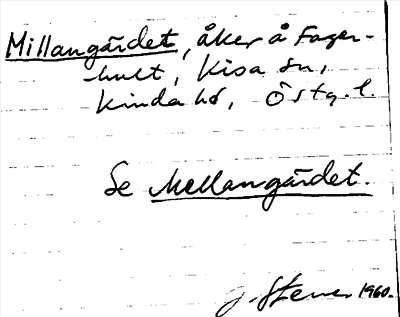 Millangärdet, åker å Fager-
hult, Kisa sn,
Kinda hd, Östg. l.
Se Mellangärdet.
1960.